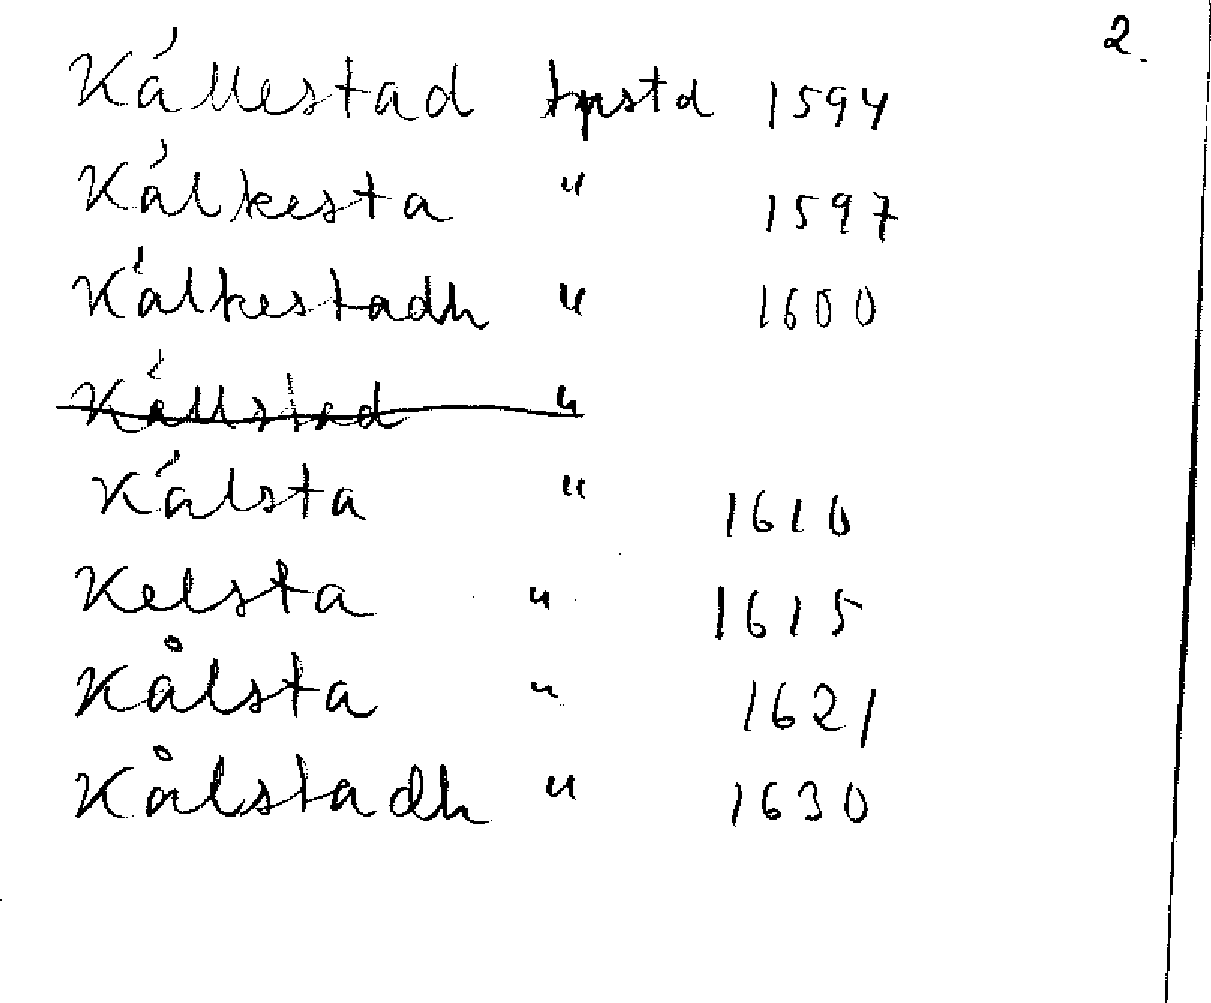 2.
Kállestad tpstd 1594
Kálkesta " 1597
Kálkestadh " 1600
Kállstad "
Kálsta " 1610
Kelsta " 1615
Kålsta " 1621
Kålstadh " 1630